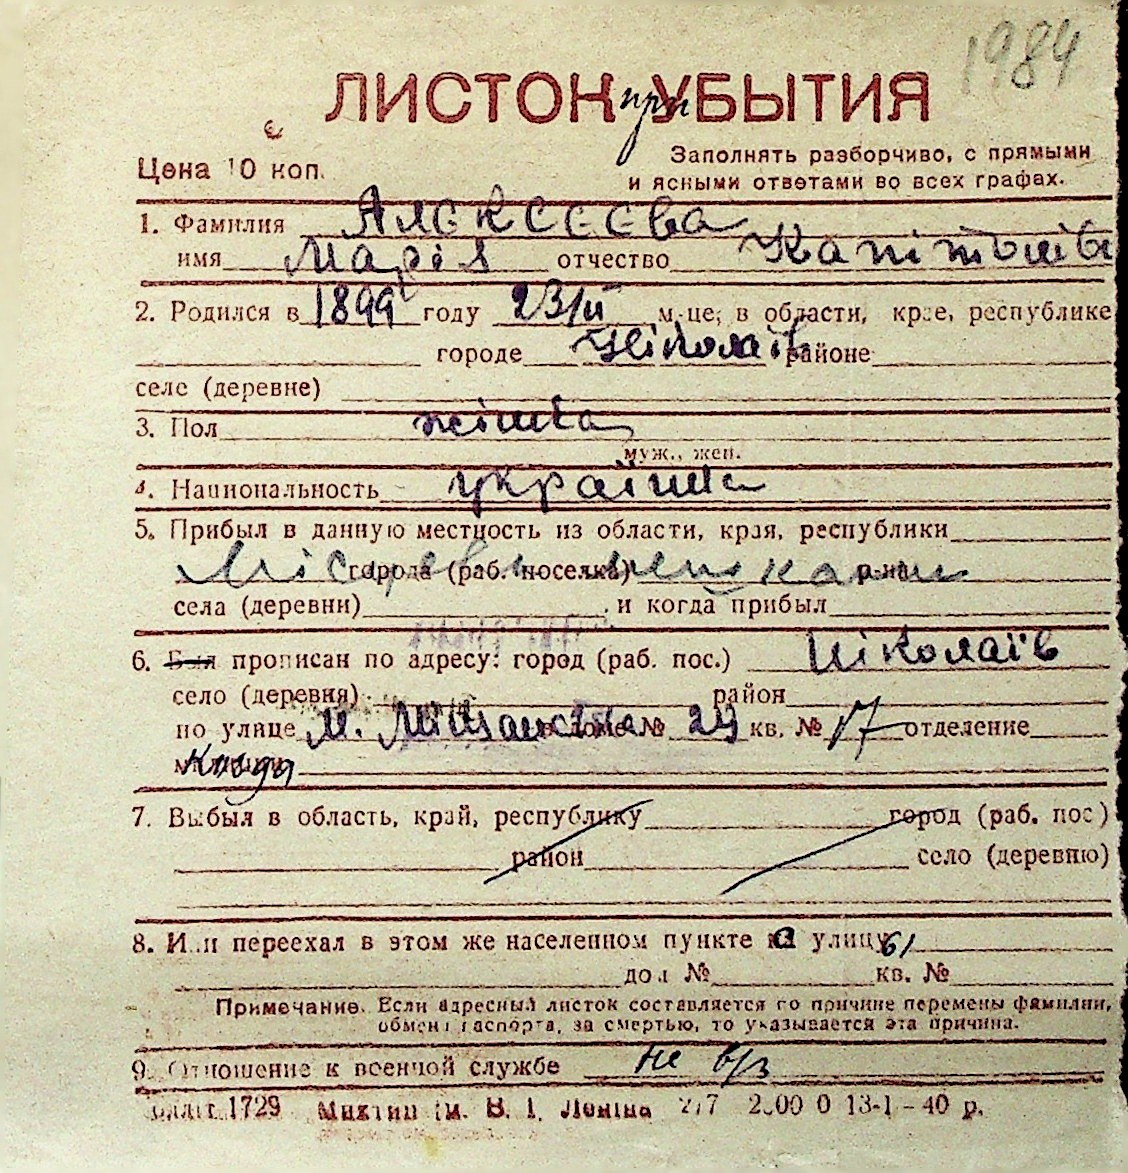 1984
ЛИСТОК при УБЫТИЯ
Цена 10 коп.
Заполнять разборчиво, с прямыми
и ясными ответами во всех графах.
1. Фамилия Алєксєєва
имя Марія отчество
2. Родился в 1899 году 23/II м-це, в области, крае, республике
городе Ніколаїв районе
селе (деревне)
3. Пол жінка
муж., жен.
4. Национальность українка
5. Прибыл в данную местность из области, края, республики
города (раб. поселка) р-на
села (деревни) и когда прибыл
6. Был прописан по адресу: город (раб. пос.) Ніколаїв
село (деревня) район
по улице М. Міщанська доме № 29 кв. № 17 отделение
милиции
7. Выбыл в область, край, республику город (раб. пос)
район село (деревню)
8. Или переехал в этом же населенном пункте с улицы
дом № кв. №
Примечание. Если адресный листок составляется по причине перемены фамилии,
обмена паспорта, за смертью, то указывается эта причина.
9. Отношение к военной службе не в/з
1729 ім. В. І. Леніна 13-1-40 р.